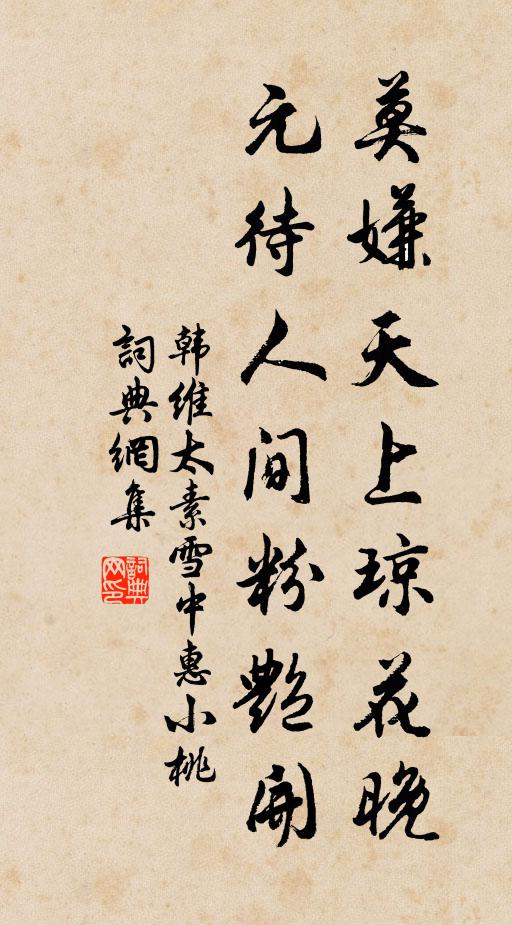 莫嫌天上琼花晚
元待人间粉艷開
韩维太素雪中惠小桃
詞典網集
詞典网印